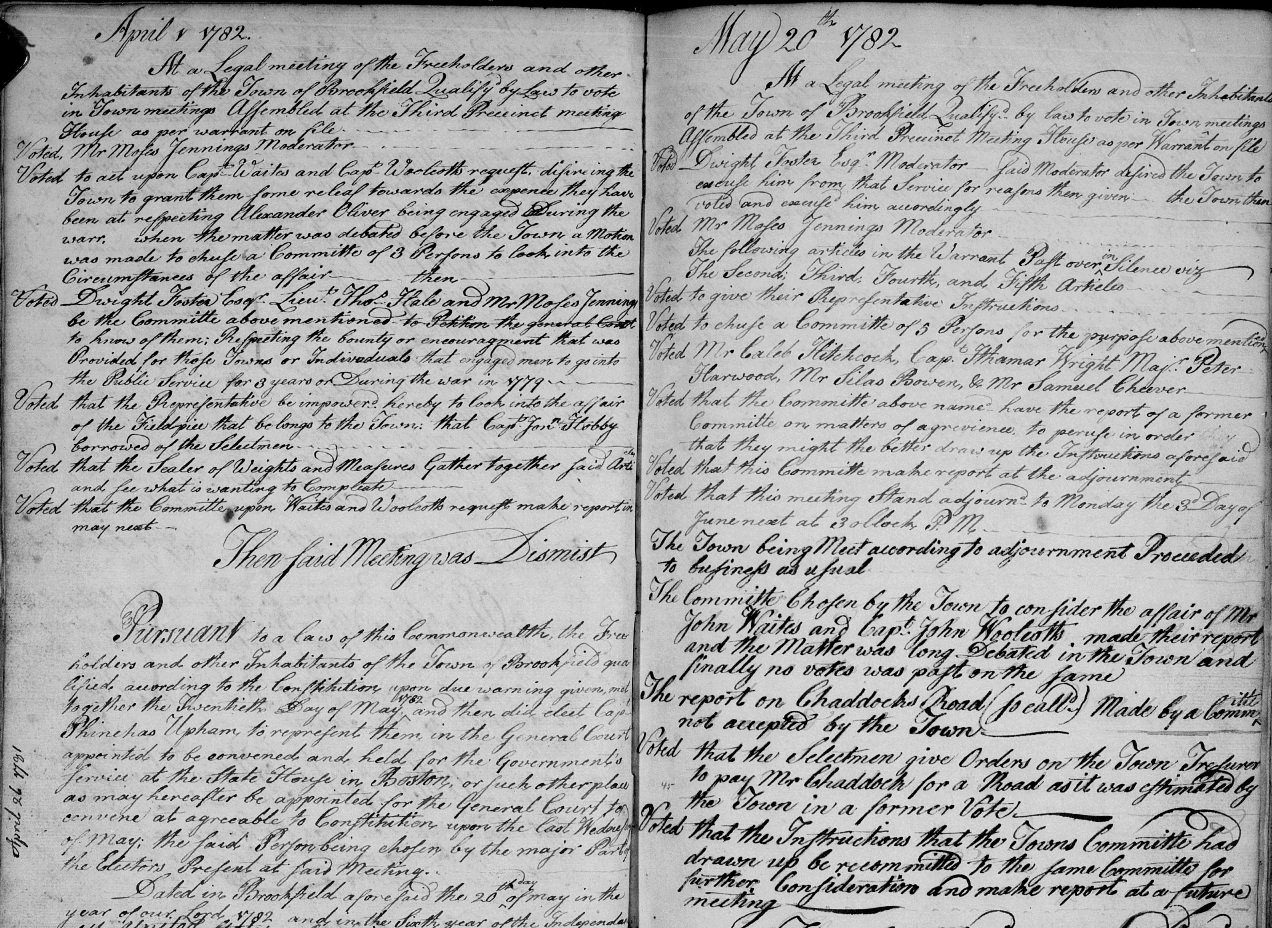 April 1 1782.
At a Legal meeting of the Freeholders and other
Inhabitants of the Town of Brookfield Qualifyd by Law to vote
in Town meetings Assembled at the Third Precinct meeting
House as per warrant on file
Voted, Mr Moses Jennings Moderator
Voted to act upon Capt. Waites and Capt Woolcotts request, desireing the
Town to grant them some releaf towards the expence they have
been at respecting Alexander Oliver being engaged During the
warr. when the matter was debated before the Town a Motion
was made to chuse a Committe of 3 Persons to look into the
Circumstances of the affair then
Voted Dwight Foster Esqr. Lieut. Thos. Hale and Mr Moses Jennings
be the Committe above mentioned to Petition the general Court
to know of them; Respecting the bounty or encouragment that was
Provided for those Towns or Individuals that engaged men to go into
the Public Service for 3 years or During the war in 1779
Voted that the Representative be impowerd hereby to look into the affair
of the Fieldpiece that belongs to the Town: that Capt Jonn. Hobby
borrowed of the Selectmen
Voted that the Sealer of Weights and Measures Gather together said
and see what is wanting to Compleate
Voted that the Committe upon Waites and Woolcotts request make report in
may next
Then said Meeting was Dismist
Pursuant to a Law of this Commonwealth, the Free
holders and other Inhabitants of the Town of Brookfield qua
lified according to the Constitution, upon due warning given, met
together the Twentieth Day of May 1782 and then did elect Capt
Phinehas Upham, to represent them, in the General Court
appointed to be convened and held for the Government's
service at the State House in Boston, or such other place
as may hereafter be appointed for the General Court to
convene at agreeable to Constitution upon the Last Wednes
of May; the said Person being chosen by the major Part of
the Electors, Present at said Meeting.
Dated in Brookfield aforesaid the 20th day of may in the
year of our Lord 1782 and in the Sixth year of the Independa
April 26 1781
May 20th 1782
At a Legal meeting of the Freeholders and other Inhabitants
of the Town of Brookfield Qualifyd. by law to vote in Town meetings
Assembled at the Third Precinct Meeting House as per Warrant on file
Voted Dwight Foster Esqr. Moderator said Moderator desired the Town to
excuse him from that Service for reasons then given the Town then
voted and excusd him accordingly
Voted Mr Moses Jennings Moderator
The following articles in the Warrant Past over in Silence viz
The Second; Third, Fourth, and Fifth Articles
Voted to give their Representative Instructions
Voted to chuse a Committe of 5 Persons for the purpose above mention
Voted Mr Caleb Hitchcock, Capt. Ithamar Wright Majr. Peter
Harwood, Mr Silas Bowen, & Mr Samuel Cheever
Voted that the Committe above name have the report of a former
Committe on matters of agrevience, to peruse in order
that they might the better draw up the Instructions aforesaid
Voted that this Committe make report at the adjournment
Voted that this meeting Stand adjournd to Monday the 3d Day of
June next at 3 oClock P.M.
The Town being Meet according to adjournment Proceeded
to business as usual
The Committe Chosen by the Town to consider the affair of Mr
John Waites and Capt. John Woolcotts, made their report
and the Matter was long Debated in the Town and
finally no votes was past on the same
The report on Chaddocks Road (so calld.) Made by a Committe
not accepted by the Town
Voted that the Selectmen give Orders on the Town Tresurer
to pay Mr Chaddock for a Road as it was estimated by
the Town in a former Vote
Voted that the Instructions that the Towns Committe had
drawn up be recommitted to the same Committe for
further Consideration and make report at a future
meeting